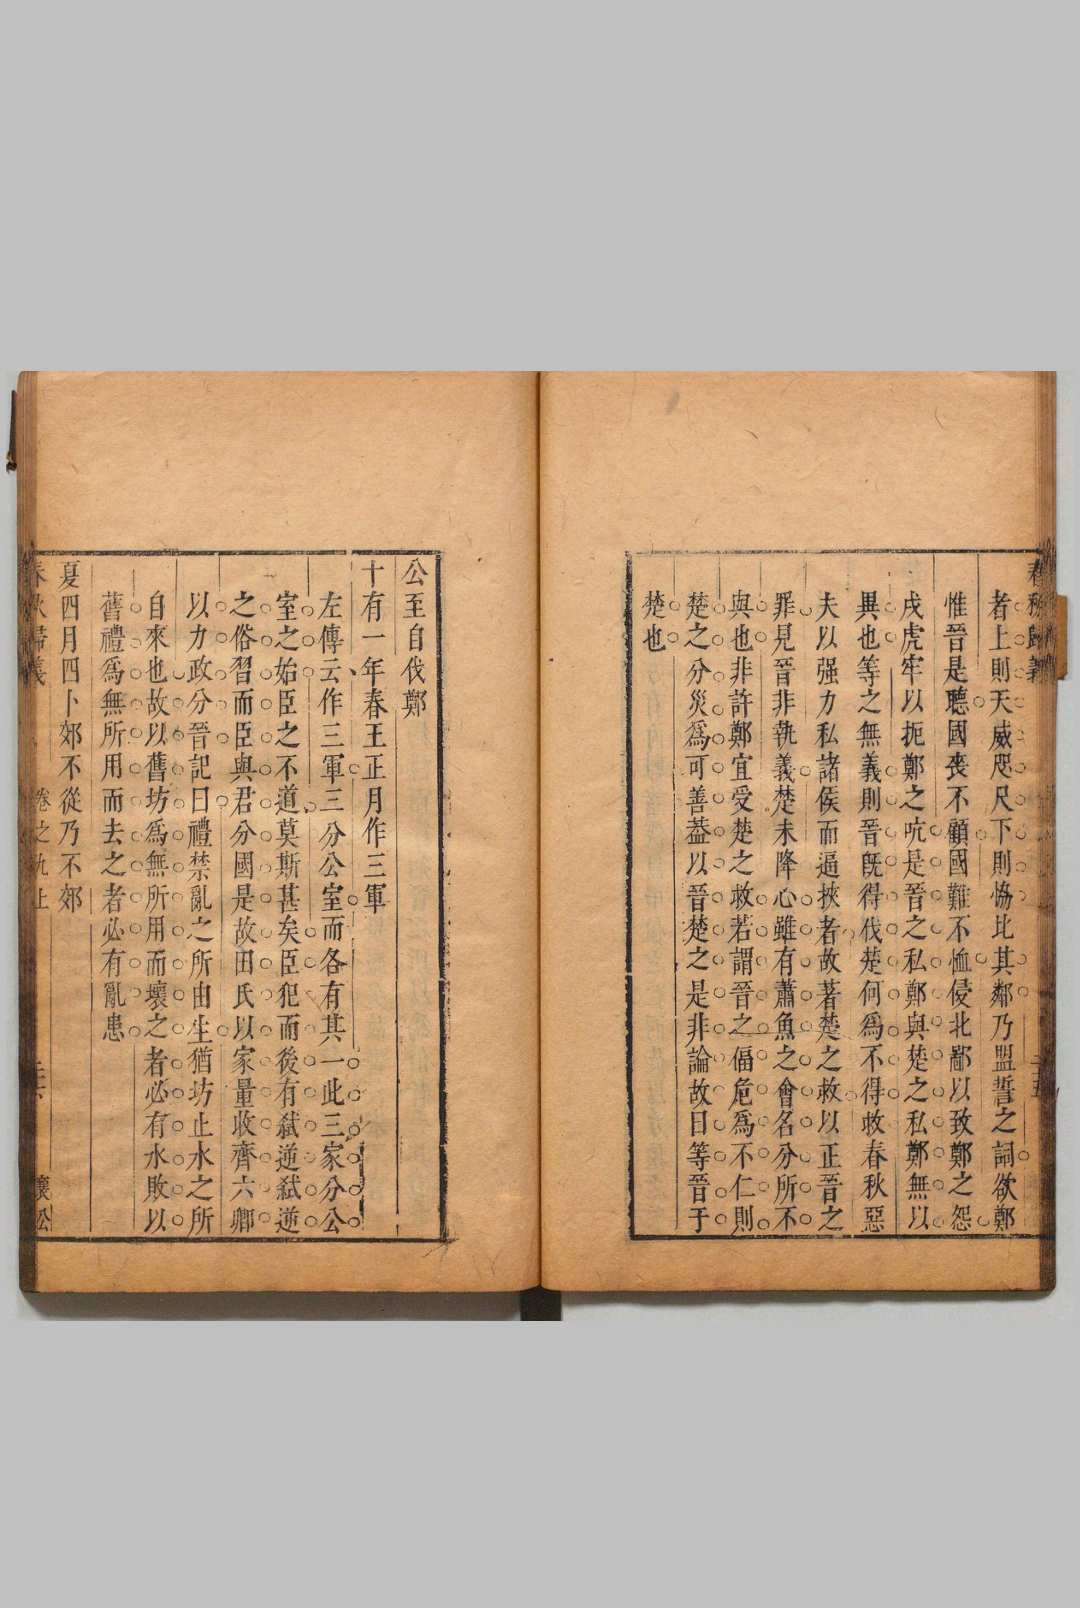 春秋歸義
者上則天威咫尺下則恊比其鄰乃盟誓之詞欲鄭
惟晉是聽國喪不顧國難不恤侵北鄙以致鄭之怨
戍虎牢以扼鄭之吭是晉之私鄭與楚之私鄭無以
異也等之無義則晉旣得伐楚何爲不得救春秋惡
夫以强力私諸侯而逼挾者故著楚之救以正晉之
罪見晉非執義楚未降心雖有蕭魚之會名分所不
與也非許鄭宜受楚之救若謂晉之偪危爲不仁則
楚之分災爲可善葢以晉楚之是非論故曰等晉于
楚也
公至自伐鄭
十有一年春王正月作三軍
左傳云作三軍三分公室而各有其一此三家分公
室之始臣之不道莫斯甚矣臣犯而後有弑逆弑逆
之俗習而臣與君分國是故田氏以家量收齊六卿
以力政分晉記曰禮禁亂之所由生猶坊止水之所
自來也故以舊坊爲無所用而壞之者必有水敗以
舊禮爲無所用而去之者必有亂患
夏四月四卜郊不從乃不郊
春秋歸義 卷之九上 襄公